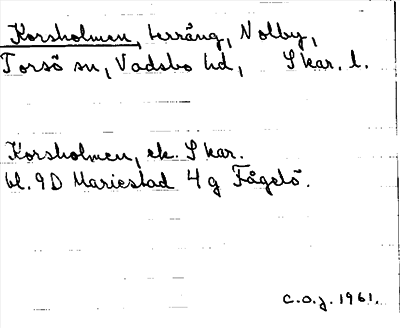 Korsholmen, terräng, Nolby,
Torsö sn, Vadsbo hd, Skar. l.
Korsholmen, ek. Skar.
bl. 9D Mariestad 4 g Fågelö.
C.O.J. 1961.